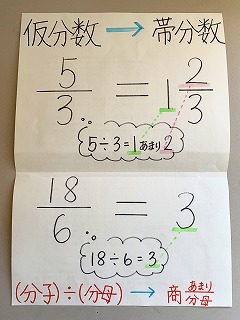 仮分数 → 帯分数
5/3 = 1 2/3
5÷3=1あまり2
18/6 = 3
18÷6=3
(分子)÷(分母) → 商 あまり/分母